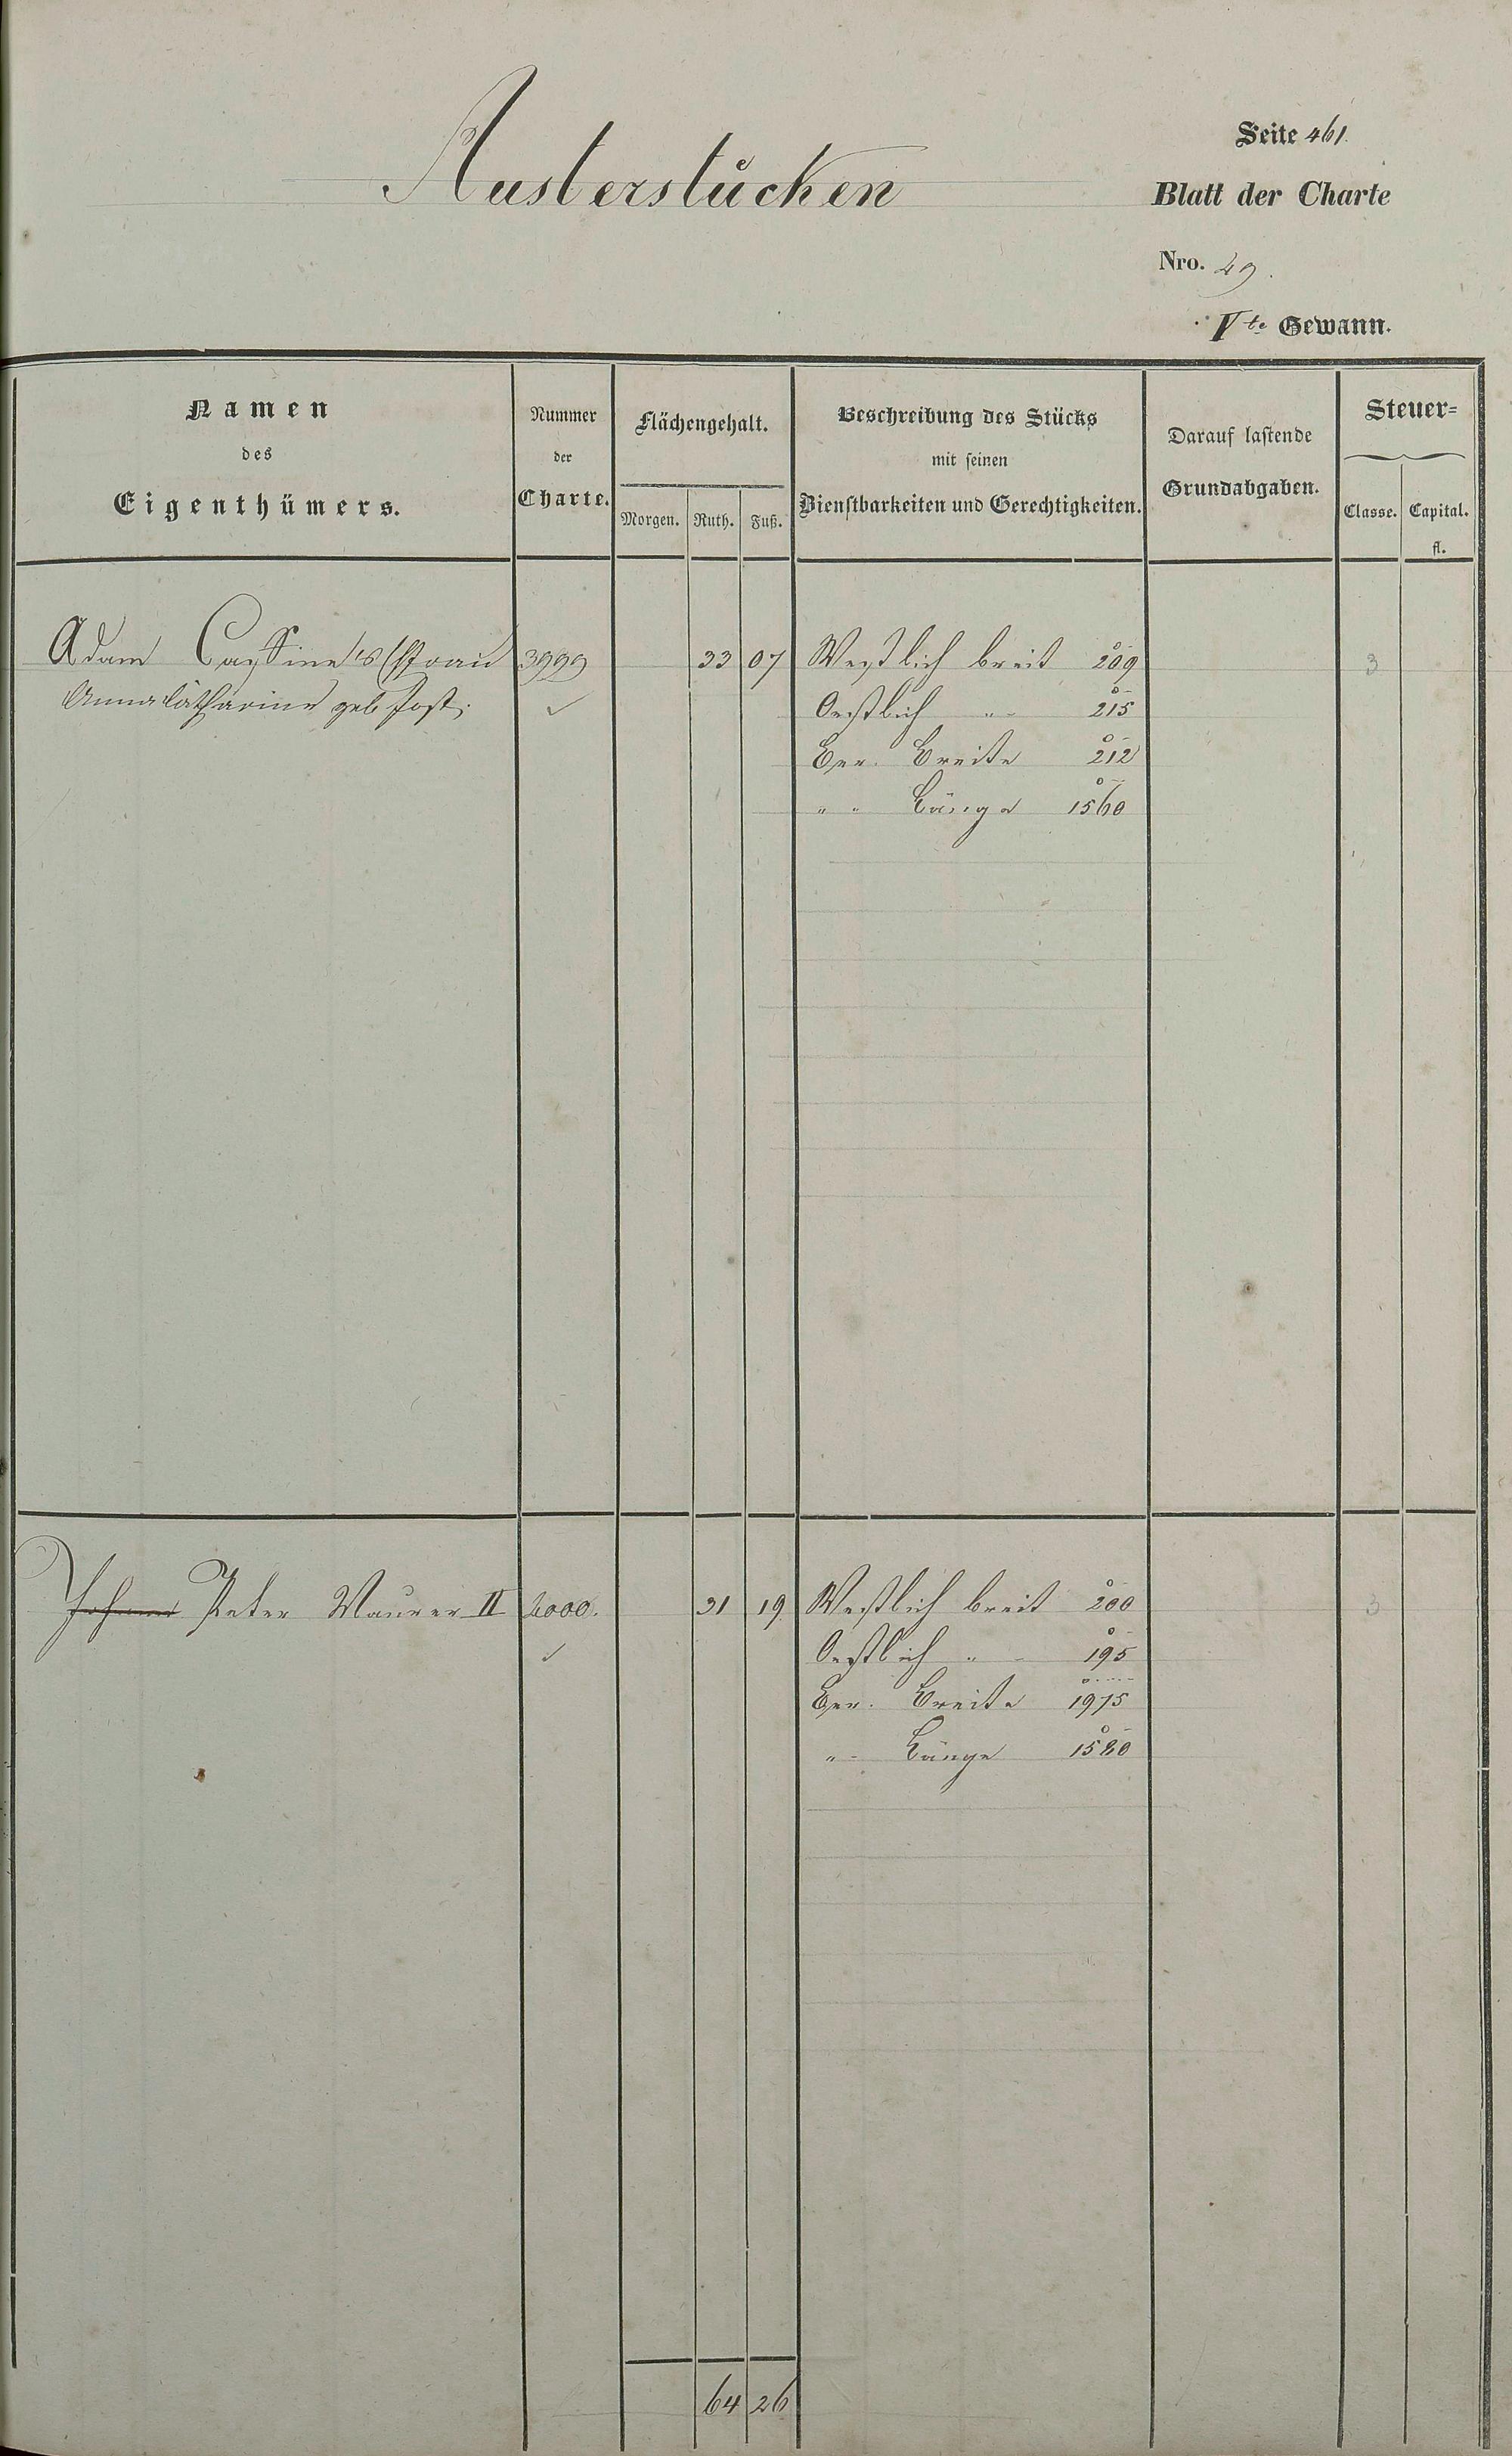 Austerstücken
Seite 461.
Blatt der Charte
Nro. 49.
Vte Gewann.
Namen
des
Eigenthümers.
Nummer
der
Charte.
Flächengehalt.
Morgen. Ruth. Fuß.
Beschreibung des Stücks
mit seinen
Dienstbarkeiten und Gerechtigkeiten.
Darauf lastende
Grundabgaben.
Steuer-
Classe. Capital.
fl.
Adam Cassine's Ehfrau 3999 33 07 Westlich breit 209 3
Anna Catharina geb Jost. ✓ Oestlich " 215
Ger. Breite 212
" " Länge 1560
Johann Peter Maurer II 4000. 31 19 Westlich breit 200 3
✓ Oestlich " 195
Ger. Breite 1975
" Länge 1580
64 26